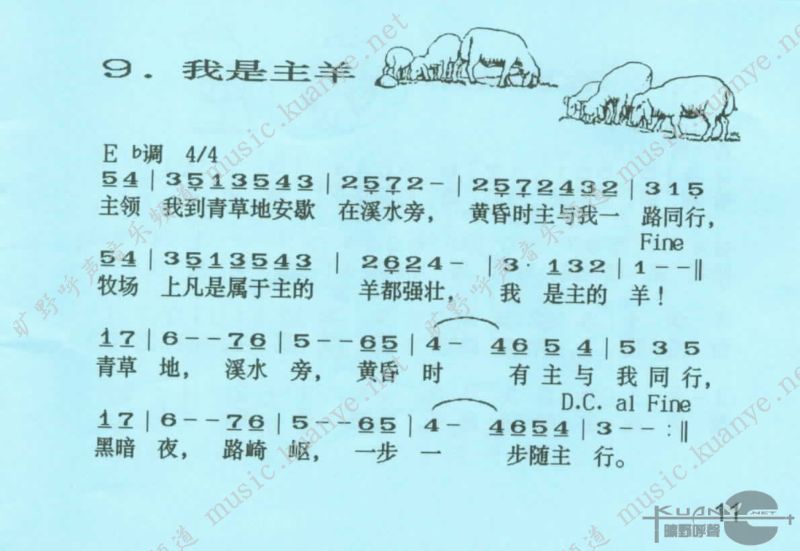 9. 我是主羊
E b调 4/4
5 4 | 3 5 1 3 5 4 3 | 2 5 7 2 - | 2 5 7 2 4 3 2 | 3 1 5
主领 我到青草地安歇 在溪水旁, 黄昏时主与我一 路同行,
Fine
5 4 | 3 5 1 3 5 4 3 | 2 6 2 4 - | 3 · 1 3 2 | 1 - - ‖
牧场 上凡是属于主的 羊都强壮, 我 是主的 羊!
1 7 | 6 - - 7 6 | 5 - - 6 5 | 4 - 4 6 5 4 | 5 3 5
青草 地, 溪水 旁, 黄昏 时 有主与 我同行,
D.C. al Fine
1 7 | 6 - - 7 6 | 5 - - 6 5 | 4 - 4 6 5 4 | 3 - - :‖
黑暗 夜, 路崎 岖, 一步 一 步随主 行。
11
KUANYE.NET
曠野呼聲
旷野呼声音乐频道 music.kuanye.net